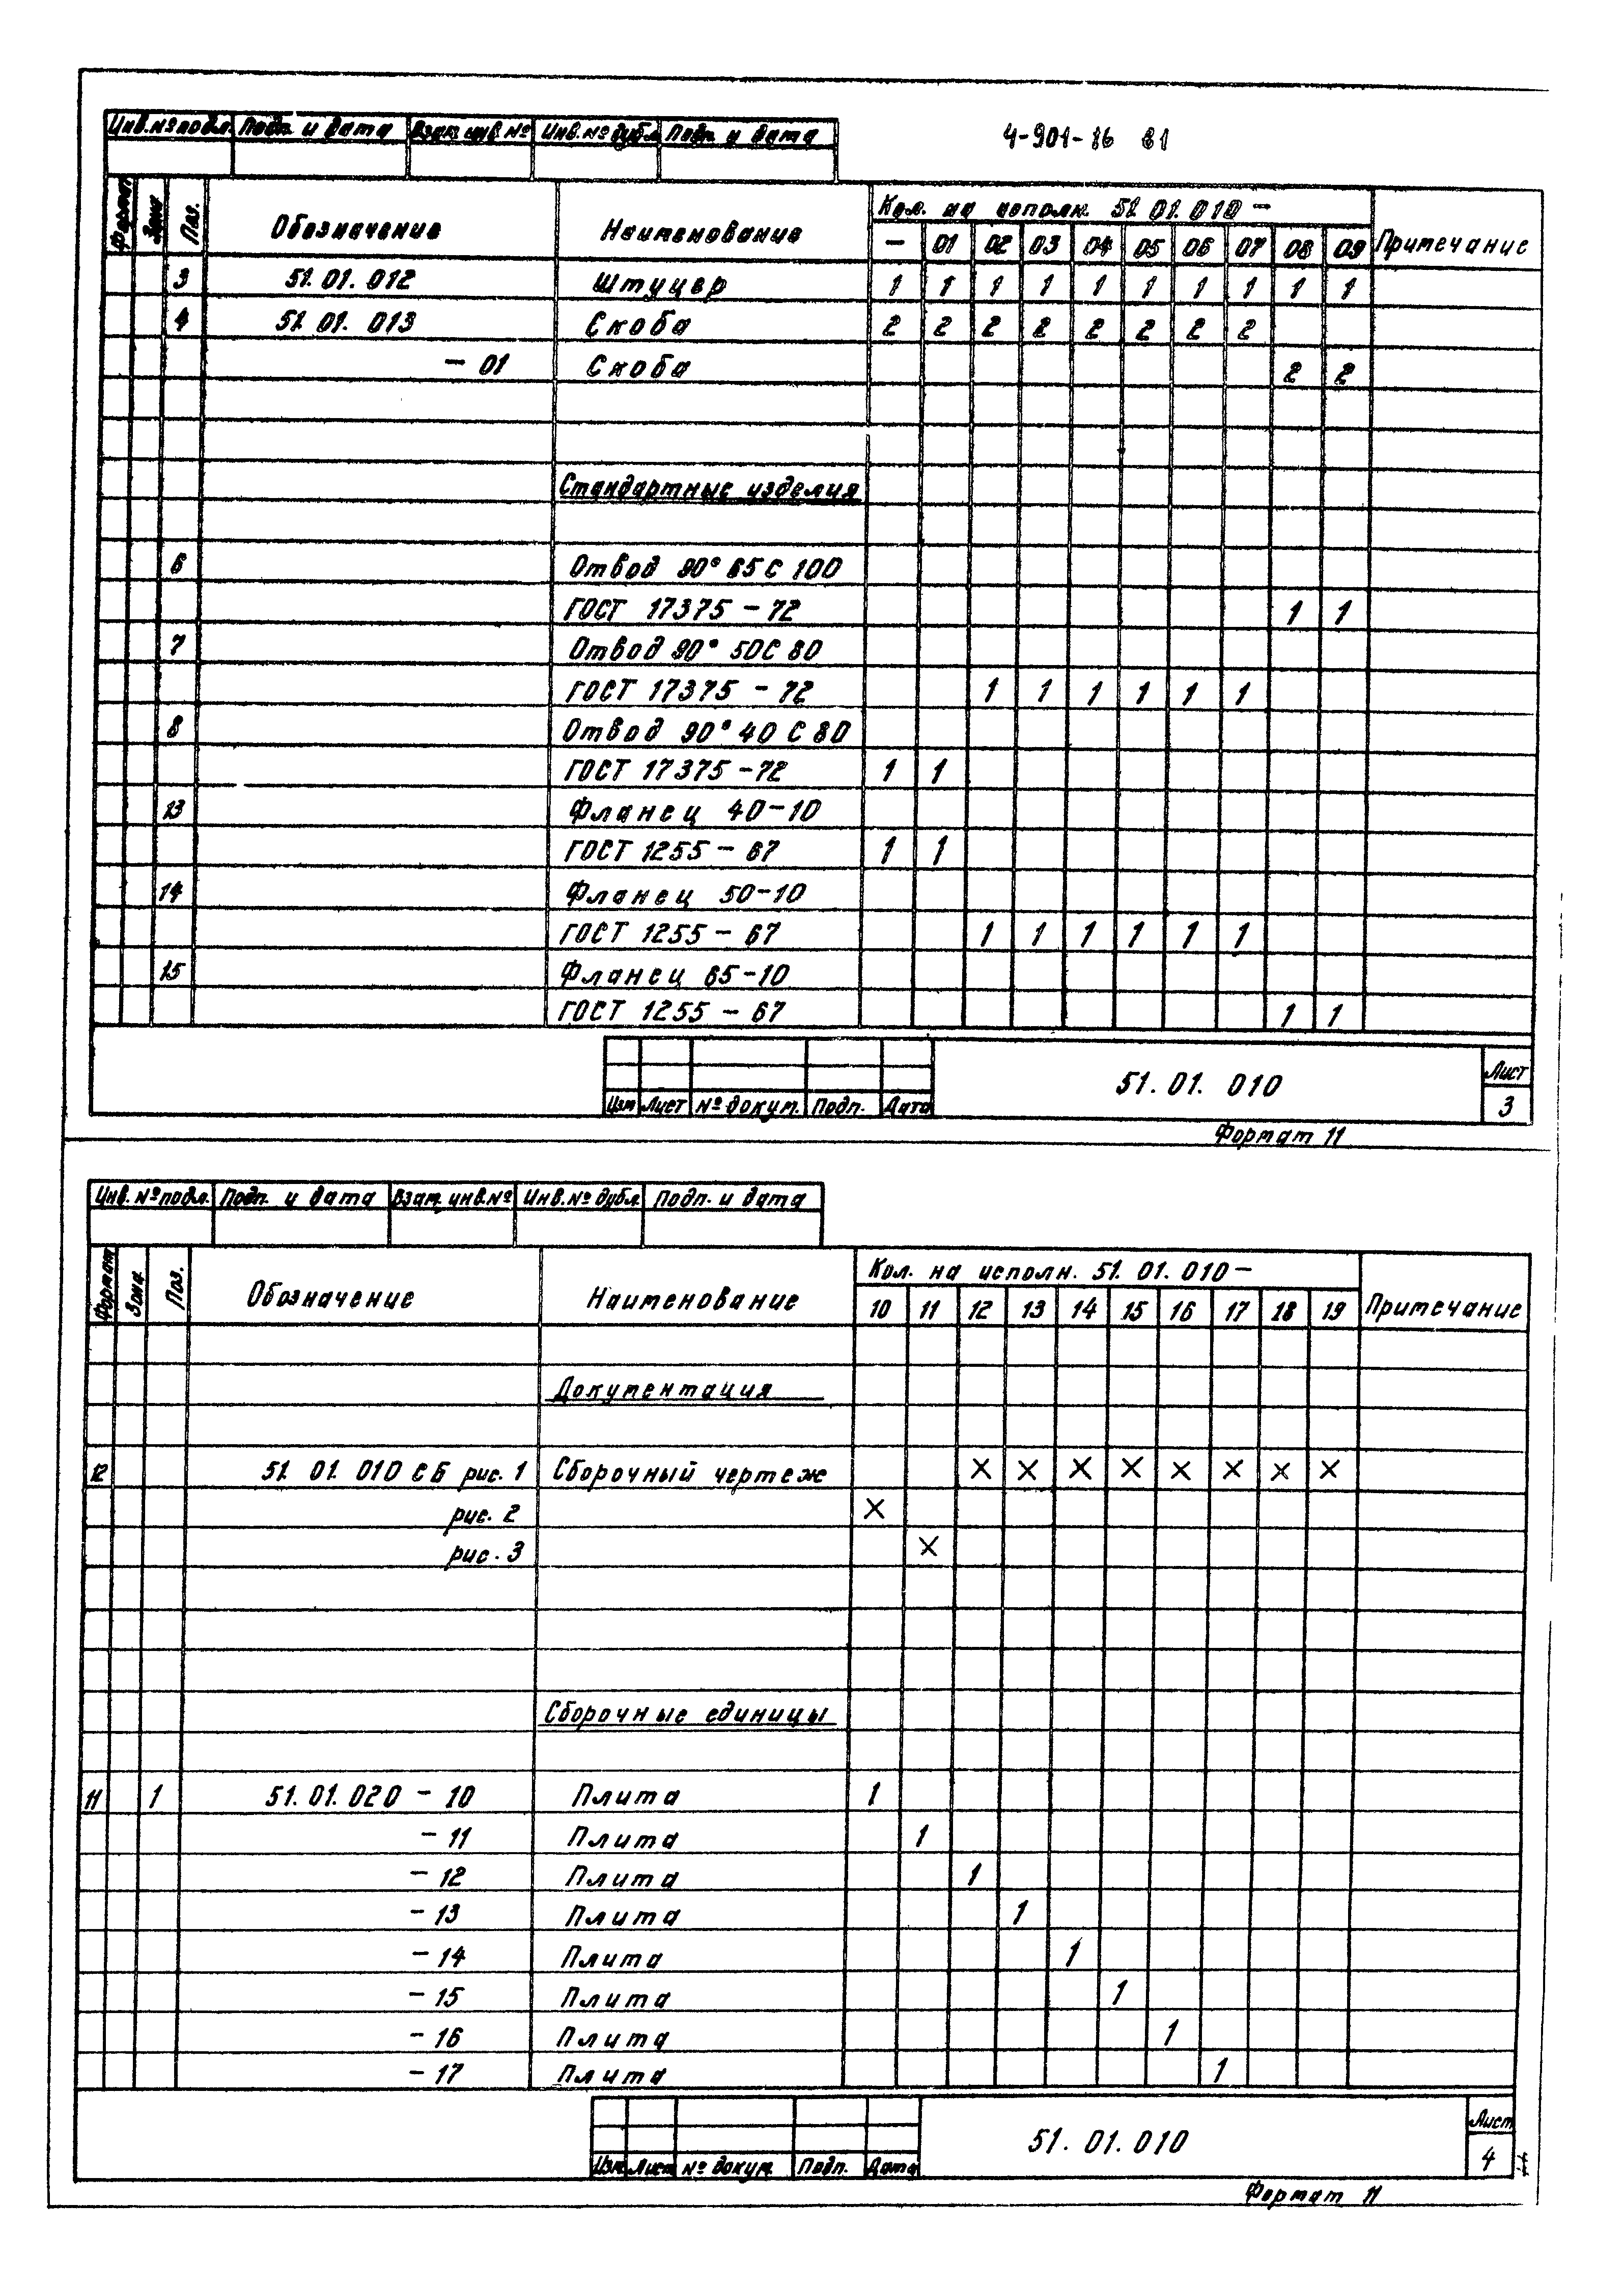 Инв.№ подл. Подп. и дата Взам. инв.№ Инв.№ дубл. Подп. и дата
4-901-16 В1
Формат Зона Поз. Обозначение Наименование Кол. на исполн. 51.01.010 — Примечание
— 01 02 03 04 05 06 07 08 09
3 51.01.012 Штуцер 1 1 1 1 1 1 1 1 1 1
4 51.01.013 Скоба 2 2 2 2 2 2 2 2
— 01 Скоба 2 2
Стандартные изделия
6 Отвод 90° 65С 100
ГОСТ 17375 – 72 1 1
7 Отвод 90° 50С 80
ГОСТ 17375 – 72 1 1 1 1 1 1
8 Отвод 90° 40 С 80
ГОСТ 17375 – 72 1 1
13 Фланец 40–10
ГОСТ 1255 – 67 1 1
14 Фланец 50–10
ГОСТ 1255 – 67 1 1 1 1 1 1
15 Фланец 65–10
ГОСТ 1255 – 67 1 1
51.01.010 Лист
Изм Лист № докум. Подп. Дата 3
Формат 11
Инв. № подл. Подп. и дата Взам. инв.№ Инв.№ дубл. Подп. и дата
Формат Зона Поз. Обозначение Наименование Кол. на исполн. 51.01.010 — Примечание
10 11 12 13 14 15 16 17 18 19
Документация
12 51.01.010 СБ рис. 1 Сборочный чертеж X X X X X X X X
рис. 2 X
рис. 3 X
Сборочные единицы
11 1 51.01.020 – 10 Плита 1
– 11 Плита 1
– 12 Плита 1
– 13 Плита 1
– 14 Плита 1
– 15 Плита 1
– 16 Плита 1
– 17 Плита 1
51.01.010 Лист
Изм Лист № докум. Подп. Дата 4
Формат 11